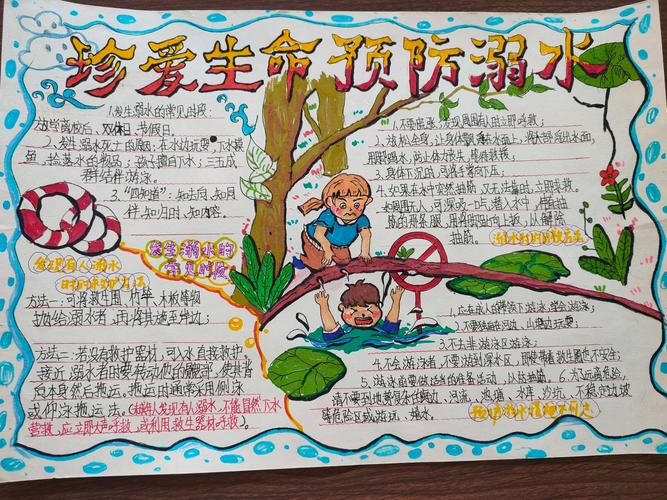 珍爱生命预防溺水
1.发生溺水的常见时段:
放学离校后、双休日、节假日。
2.发生溺水死亡的原因:在水边玩耍、下水摸
鱼、捡落水的物品;孩子擅自下水;三五成
群结伴游泳。
3."四知道":知去向、知同
伴、知归时、知内容。
发生溺水的
常见时段
发现有人溺水
时的救护方法
方法一:可将救生圈、竹竿、木板等物
抛给溺水者,再将其拖至岸边;
方法二:若没有救护器材,可入水直接救护
接近溺水者时要转动他的髋部,使其背
向自身然后拖运。拖运时通常采用侧泳
或仰泳拖运法。(未成年人发现有人溺水,不能冒然下水
营救,应立即大声呼救,或利用救生器材呼救)。
1.不要慌张,发现周围有人时立即呼救;
2.放松全身,让身体飘浮在水面上,将头部浮出水面,
用脚踢水,防止体力丧失,等待救援;
3.身体下沉时,可将手掌向下压;
4.如果在水中突然抽筋,又无法靠岸时,立即求救。
如周围无人,可深吸一口气潜入水中,伸直抽
筋的那条腿,用手将脚趾向上扳,以解除
抽筋。
溺水时的自救方法
1.应在成人的带领下游泳,学会游泳;
2.不要独自在河边、山塘边玩耍;
3.不去非游泳区游泳;
4.不会游泳者,不要游到深水区,即使带着救生圈也不安全;
5.游泳前要做适当的准备活动,以防抽筋。6.为远离危险,
请不要到地势复杂的堰头、河流、池塘、水库、沙坑、不稳定边坡
等危险区域游玩、捕水。